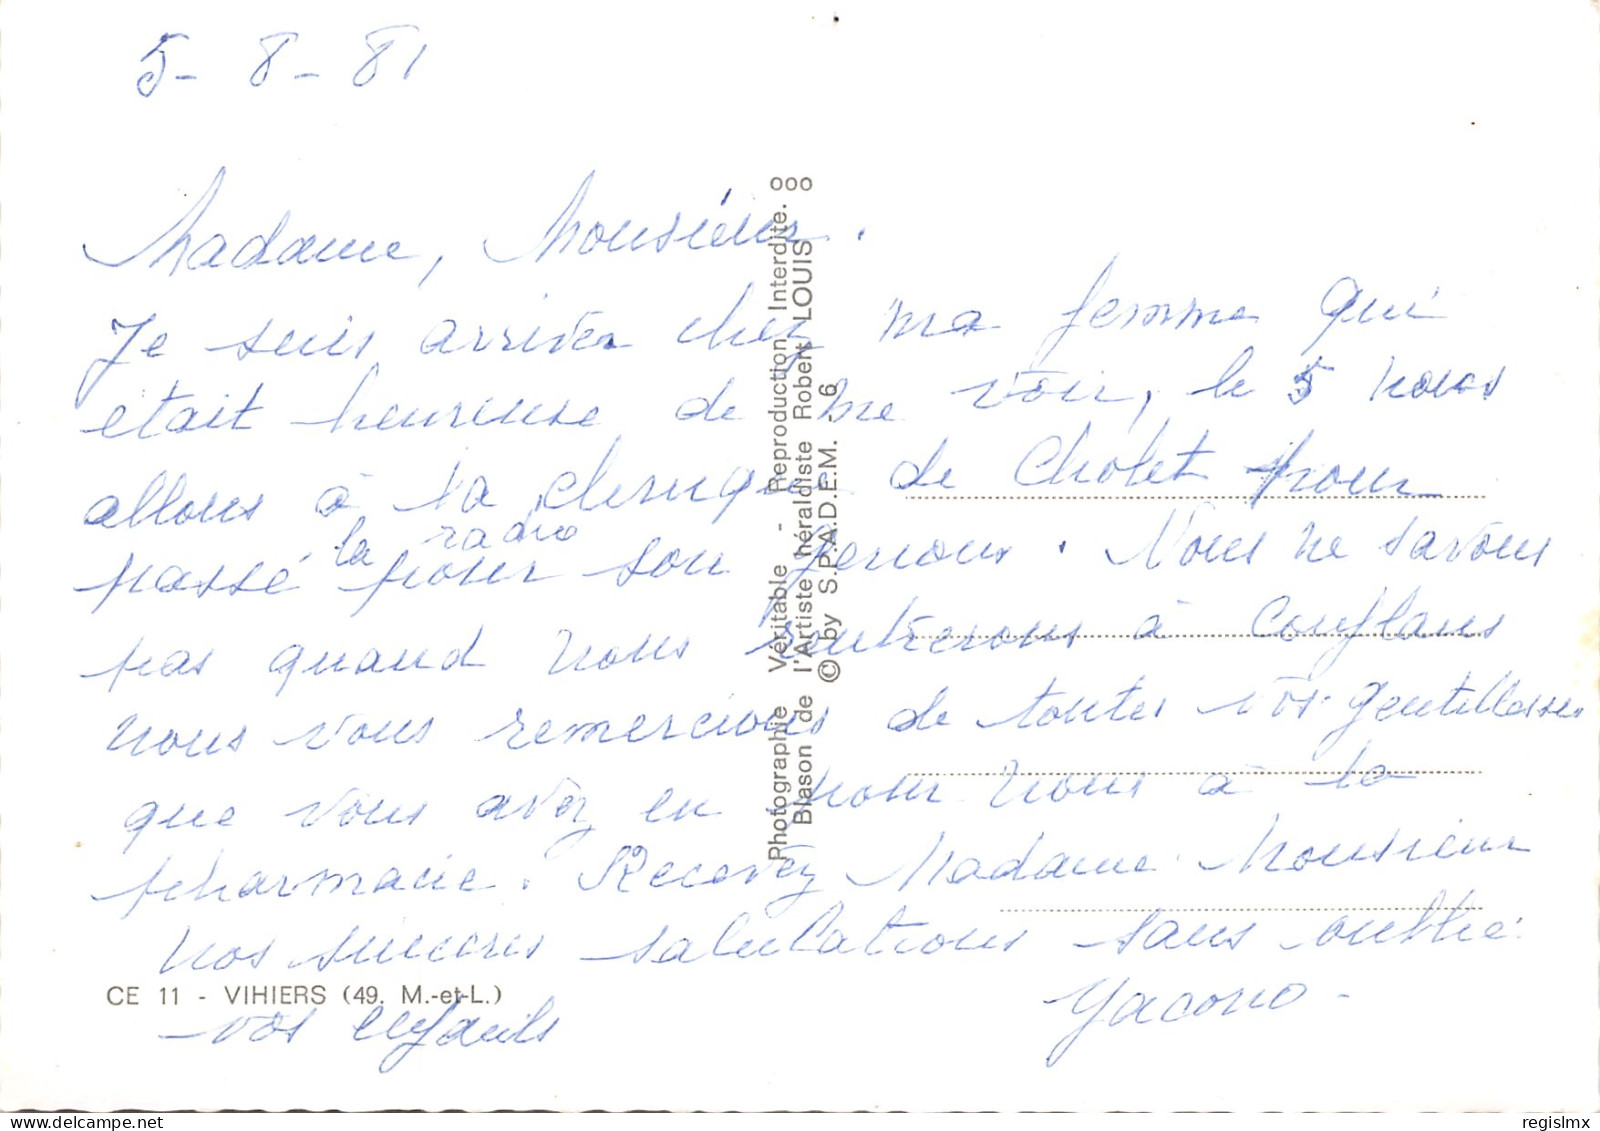 5 - 8 - 81
Madame, Monsieur.
Je suis arriver chez ma femme qui
etait heureuse de me voir, le 5 nous
allons à la clenique de Cholet pour
la radio
passé pour son genoux. Nous ne savons
pas quand nous rentrerons à Conflans
nous vous remercions de toutes vos gentillesses
que vous avez eu pour nous à la
pharmacie. Recevez Madame Monsieur
nos sinceres salutations sans oublié
vos enfants
Yacono -
CE 11 - VIHIERS (49. M.-et-L.)
Photographie Véritable - Reproduction Interdite. ooo
Blason de l'Artiste héraldiste Robert LOUIS
© by S.P.A.D.E.M. - 6
delcampe.net
regislmx